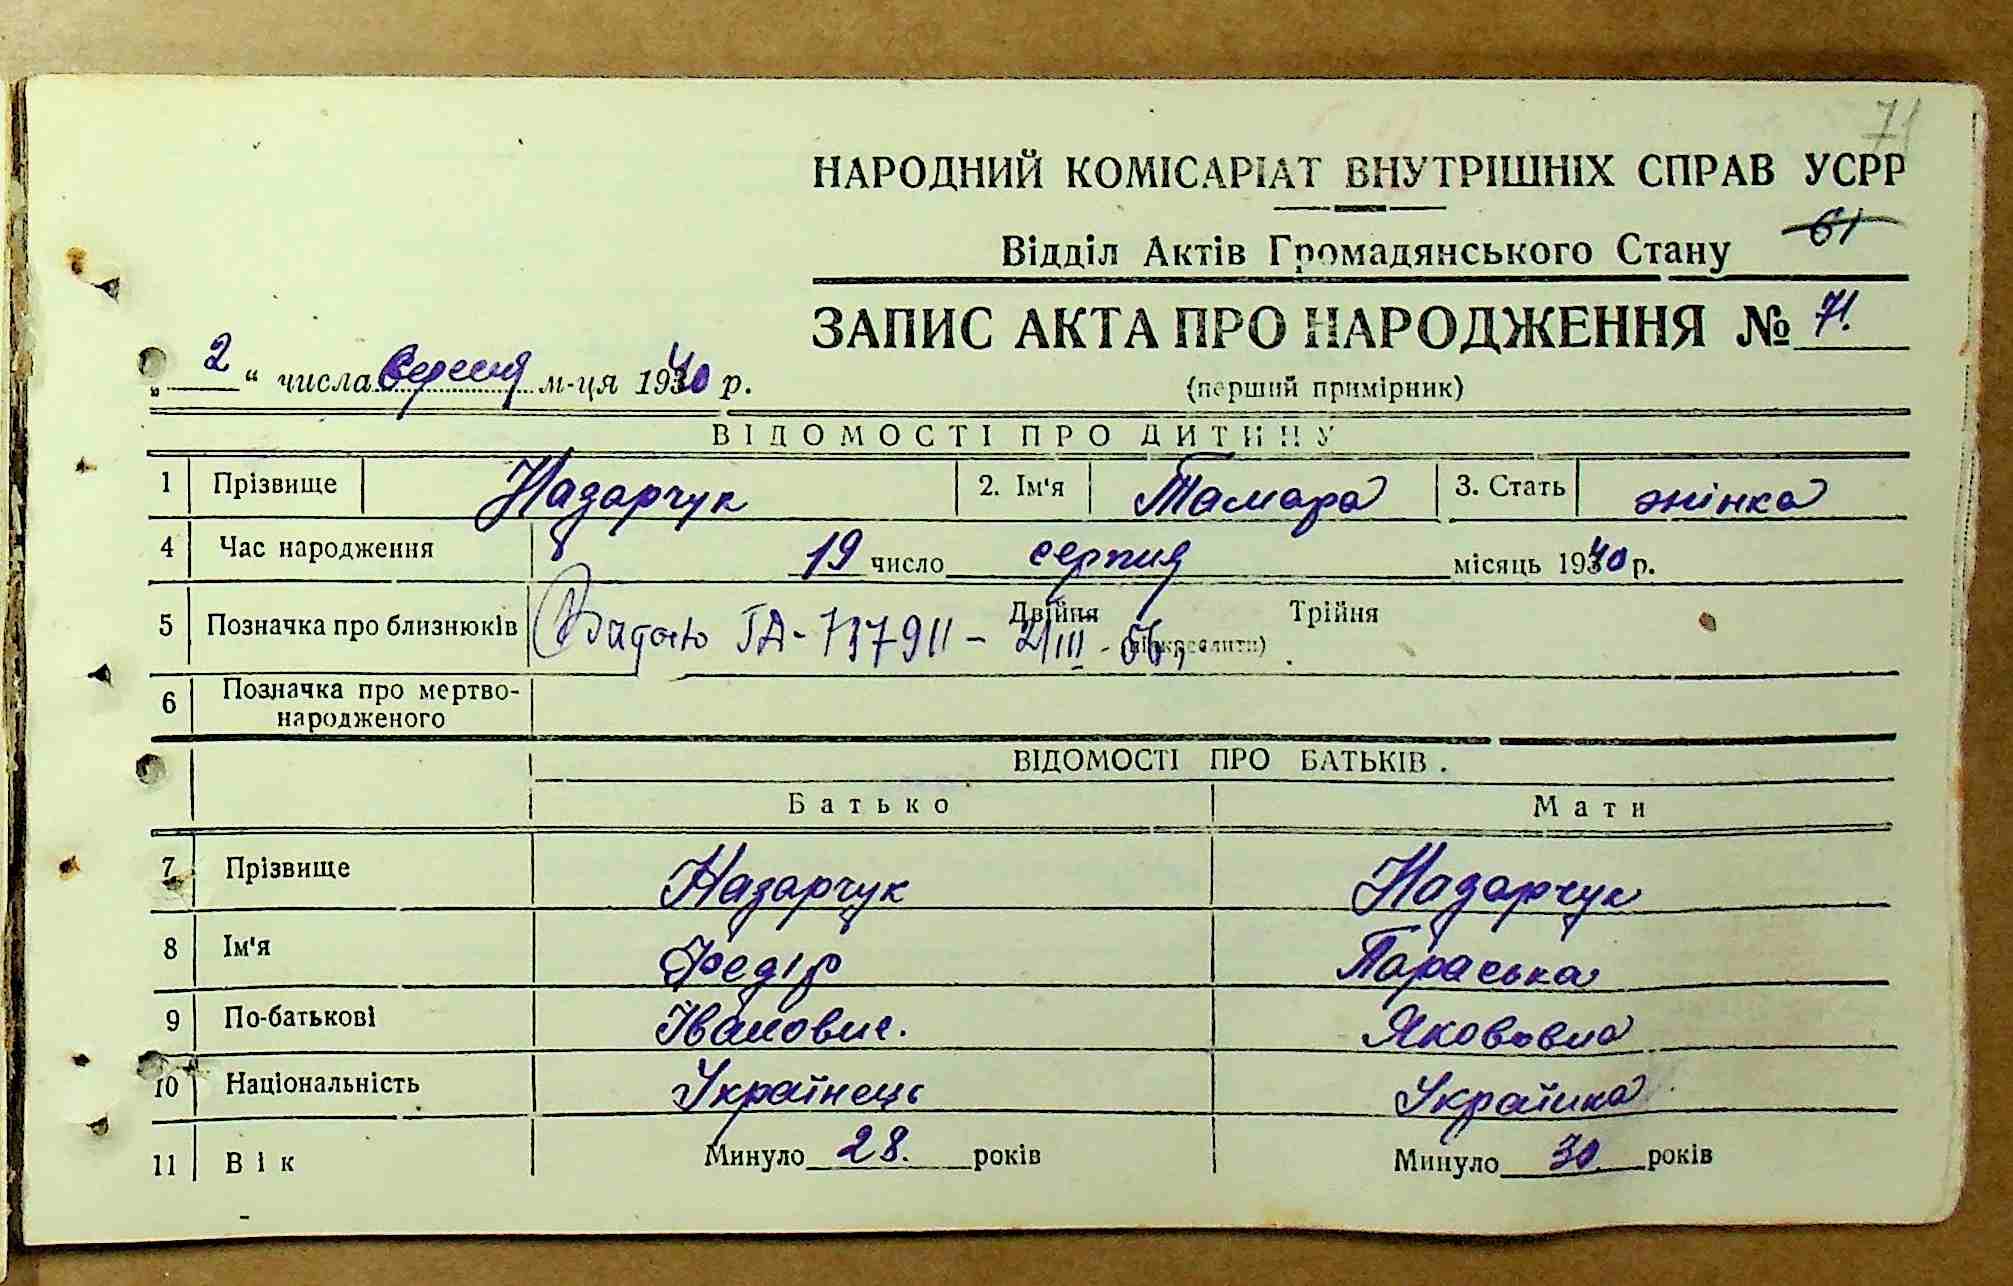 71
НАРОДНИЙ КОМІСАРІАТ ВНУТРІШНІХ СПРАВ УСРР
Відділ Актів Громадянського Стану 61
ЗАПИС АКТА ПРО НАРОДЖЕННЯ № 71.
„ 2 “ числа Вересня м-ця 1940 р.
(перший примірник)
ВІДОМОСТІ ПРО ДИТИНУ
1 Прізвище Назарчук 2. Ім'я Тамара 3. Стать жінка
4 Час народження 19 число серпня місяць 1940 р.
5 Позначка про близнюків Двійня Трійня
(підкреслити)
Видано ГА-737911-2/III-56,
6 Позначка про мертво-
народженого
ВІДОМОСТІ ПРО БАТЬКІВ.
Батько Мати
7 Прізвище Назарчук Назарчук
8 Ім'я Федір Параська
9 По-батькові Іванович. Якововна
10 Національність Українець Українка
11 Вік Минуло 28. років Минуло 30. років